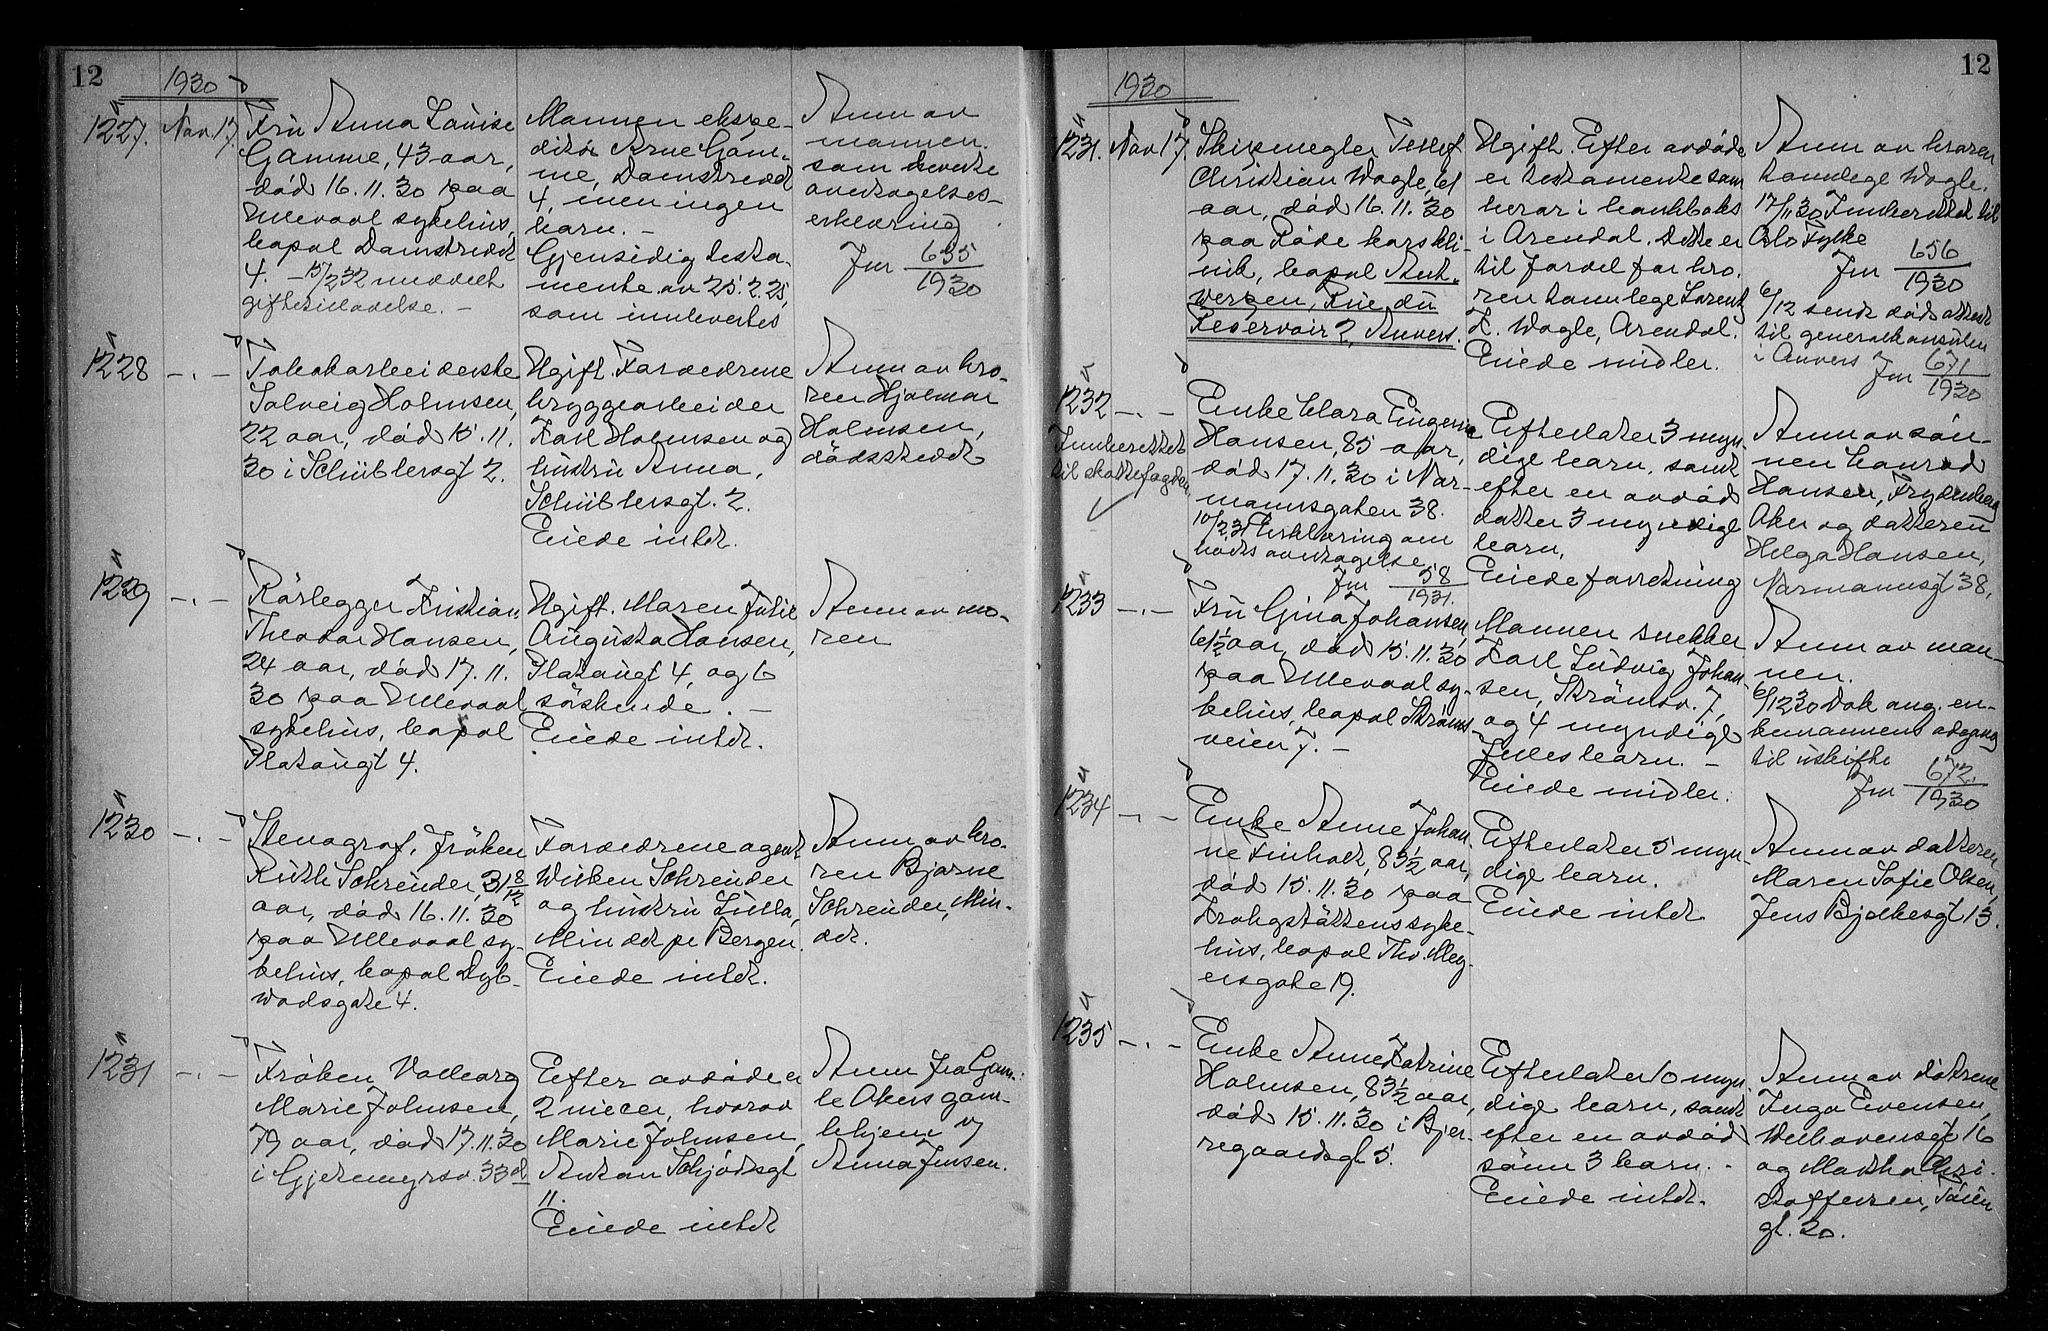 12
1930
1227. Nov. 17.
Fru Anna Louise
Gamme, 43 aar,
död 16.11.30 paa
Ullevaal sykehus,
bopæl Damstrædet
4. – 15/2 32 meddelt
giftetilladelse. –
Mannen ekspe-
ditör Arne Gam-
me, Damstrædet
4, men ingen
barn. –
Gjensidig testa-
mente av 25.2.25,
som innlevertes
Anm av
mannen.
som hevete
overtagelses-
erklæring
Jnr 655
1930
1228 –.–
Tobakarbeiderske
Solveig Holmsen,
22 aar, död 15.11.
30 i Schüblersgt 2.
Ugift. Forældrene
bryggearbeider
Karl Holmsen og
hustru Anna,
Schüblersgt. 2.
Eiede intet.
Anm av bro-
ren Hjalmar
Holmsen,
dödsstedet
1229 –.–
Rörlegger Kristian
Theodor Hansen,
24 aar, död 17.11.
30 paa Ullevaal
sykehus, bopæl
Platougt 4.
Ugift. Moren Julie
Augusta Hansen,
Platougt 4, og 6
söskende. –
Eiede intet.
Anm av mo-
ren
1230 –.–
Stenograf, fröken
Ruth Schreuder, 31 8/12
aar, död 16.11.30
paa Ullevaal sy-
kehus, bopæl Dyb-
wadsgate 4.
Forældrene agent
Wilken Schreuder
og hustru Lulla,
Minde pr Bergen.
Eiede intet.
Anm av bro-
ren Bjarne
Schreuder, Min-
de.
1231 –.–
Fröken Valborg
Marie Johnsen,
79 aar, död 17.11.30
i Gjetemyrsv. 33d
Efter avdöde er
2 niecer, hvorav
Marie Johnsen,
Anton Schjödsgt
11.
Eiede intet
Anm fra Gam-
le Akers gam-
lehjem v/
Anna Jensen.
12
1930
1231. Nov 17.
Skipsmegler Tellef
Christian Wogle, 61
aar, död 16.11.30
paa Röde kors kli-
nik, bopæl Ant-
werpen, Rue du
Reservoir 2, Anvers.
Ugift. Efter avdöde
er testamente som
beror i bankboks
i Arendal. Dette er
til fordel for bro-
ren tannlege Lorentz
F. Wogle, Arendal.
Eiede midler.
Anm av broren
tannlege Wogle.
17/11 30 Innberettet til
Oslo Fylke
Jnr 656
1930
6/12 sendt död attest
til generalkonsulen
i Anvers Jnr 671
1930
1232 –.–
Innberettet
til skattefogden
Enke Clara Eugenie
Hansen, 85 aar,
död 17.11.30 i Nor-
mannsgaten 38.
10/2 31 Erklæring om
boets overtagelse
Jnr 58
1931.
Efterlater 3 myn-
dige barn, samt
efter en avdöd
datter 3 myndige
barn.
Eiede forretning
Anm av sön-
nen Conrad
Hansen, Frydenberg
Aker og datteren
Helga Hansen,
Normannsgt 38.
1233 –.–
Fru Gina Johansen,
61½ aar, död 15.11.30
paa Ullevaal sy-
kehus, bopæl Ströms-
veien 7. –
Mannen snekker
Karl Ludvig Johan-
sen, Strömsv. 7,
og 4 myndige
fellesbarn. –
Eiede midler.
Anm av man-
nen.
6/12 30 Dok ang. en-
kemannens adgang
til uskifte
Jnr 672
1930
1234 –.–
Enke Anne Johan-
ne Finholt, 83½ aar,
död 15.11.30 paa
Krohgstöttens syke-
hus, bopæl Thv. Mey-
ersgate 19.
Efterlater 5 myn-
dige barn.
Eiede intet
Anm av datteren
Maren Sofie Olsen,
Jens Bjelkesgt 13.
1235 –.–
Enke Anne Katrine
Holmsen, 83½ aar,
död 15.11.30 i Bjer-
regaardsgt 5.
Efterlater 6 myn-
dige barn, samt
efter en avdöd
sönn 3 barn. –
Eiede intet.
Anm av dötrene
Inga Evensen,
Welhavensgt 16
og Martha Kri-
stoffersen,
gt. 20.